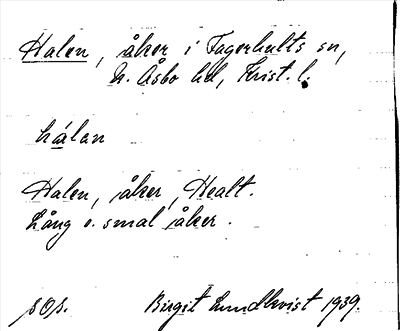 Halen, åker i Fagerhults sn,
N. Åsbo hd, Krist. l.
hálan
Halen, åker, Healt.
Lång o. smal åker.
sOs.
Birgit Lundkvist 1939.